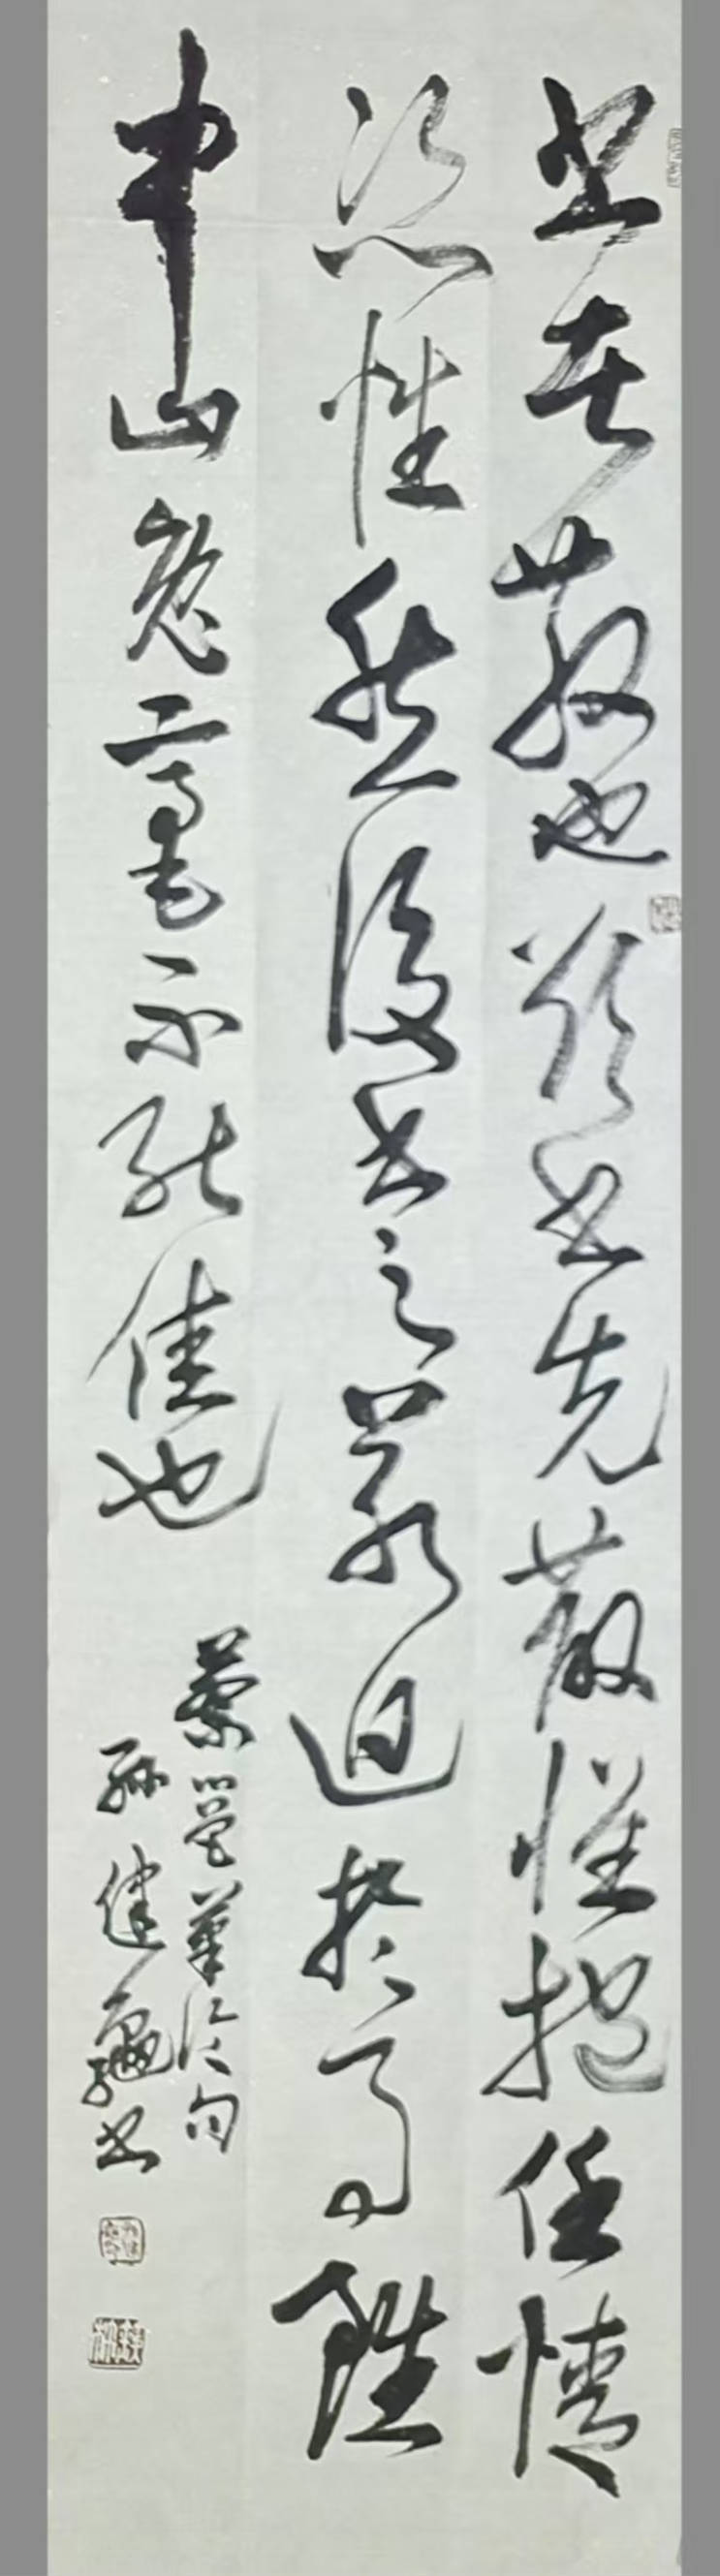 書者散也欲書先散懷抱任情
恣性然後書之若迫於事雖
中山兔毫不能佳也
蔡邕筆論句
孫健書